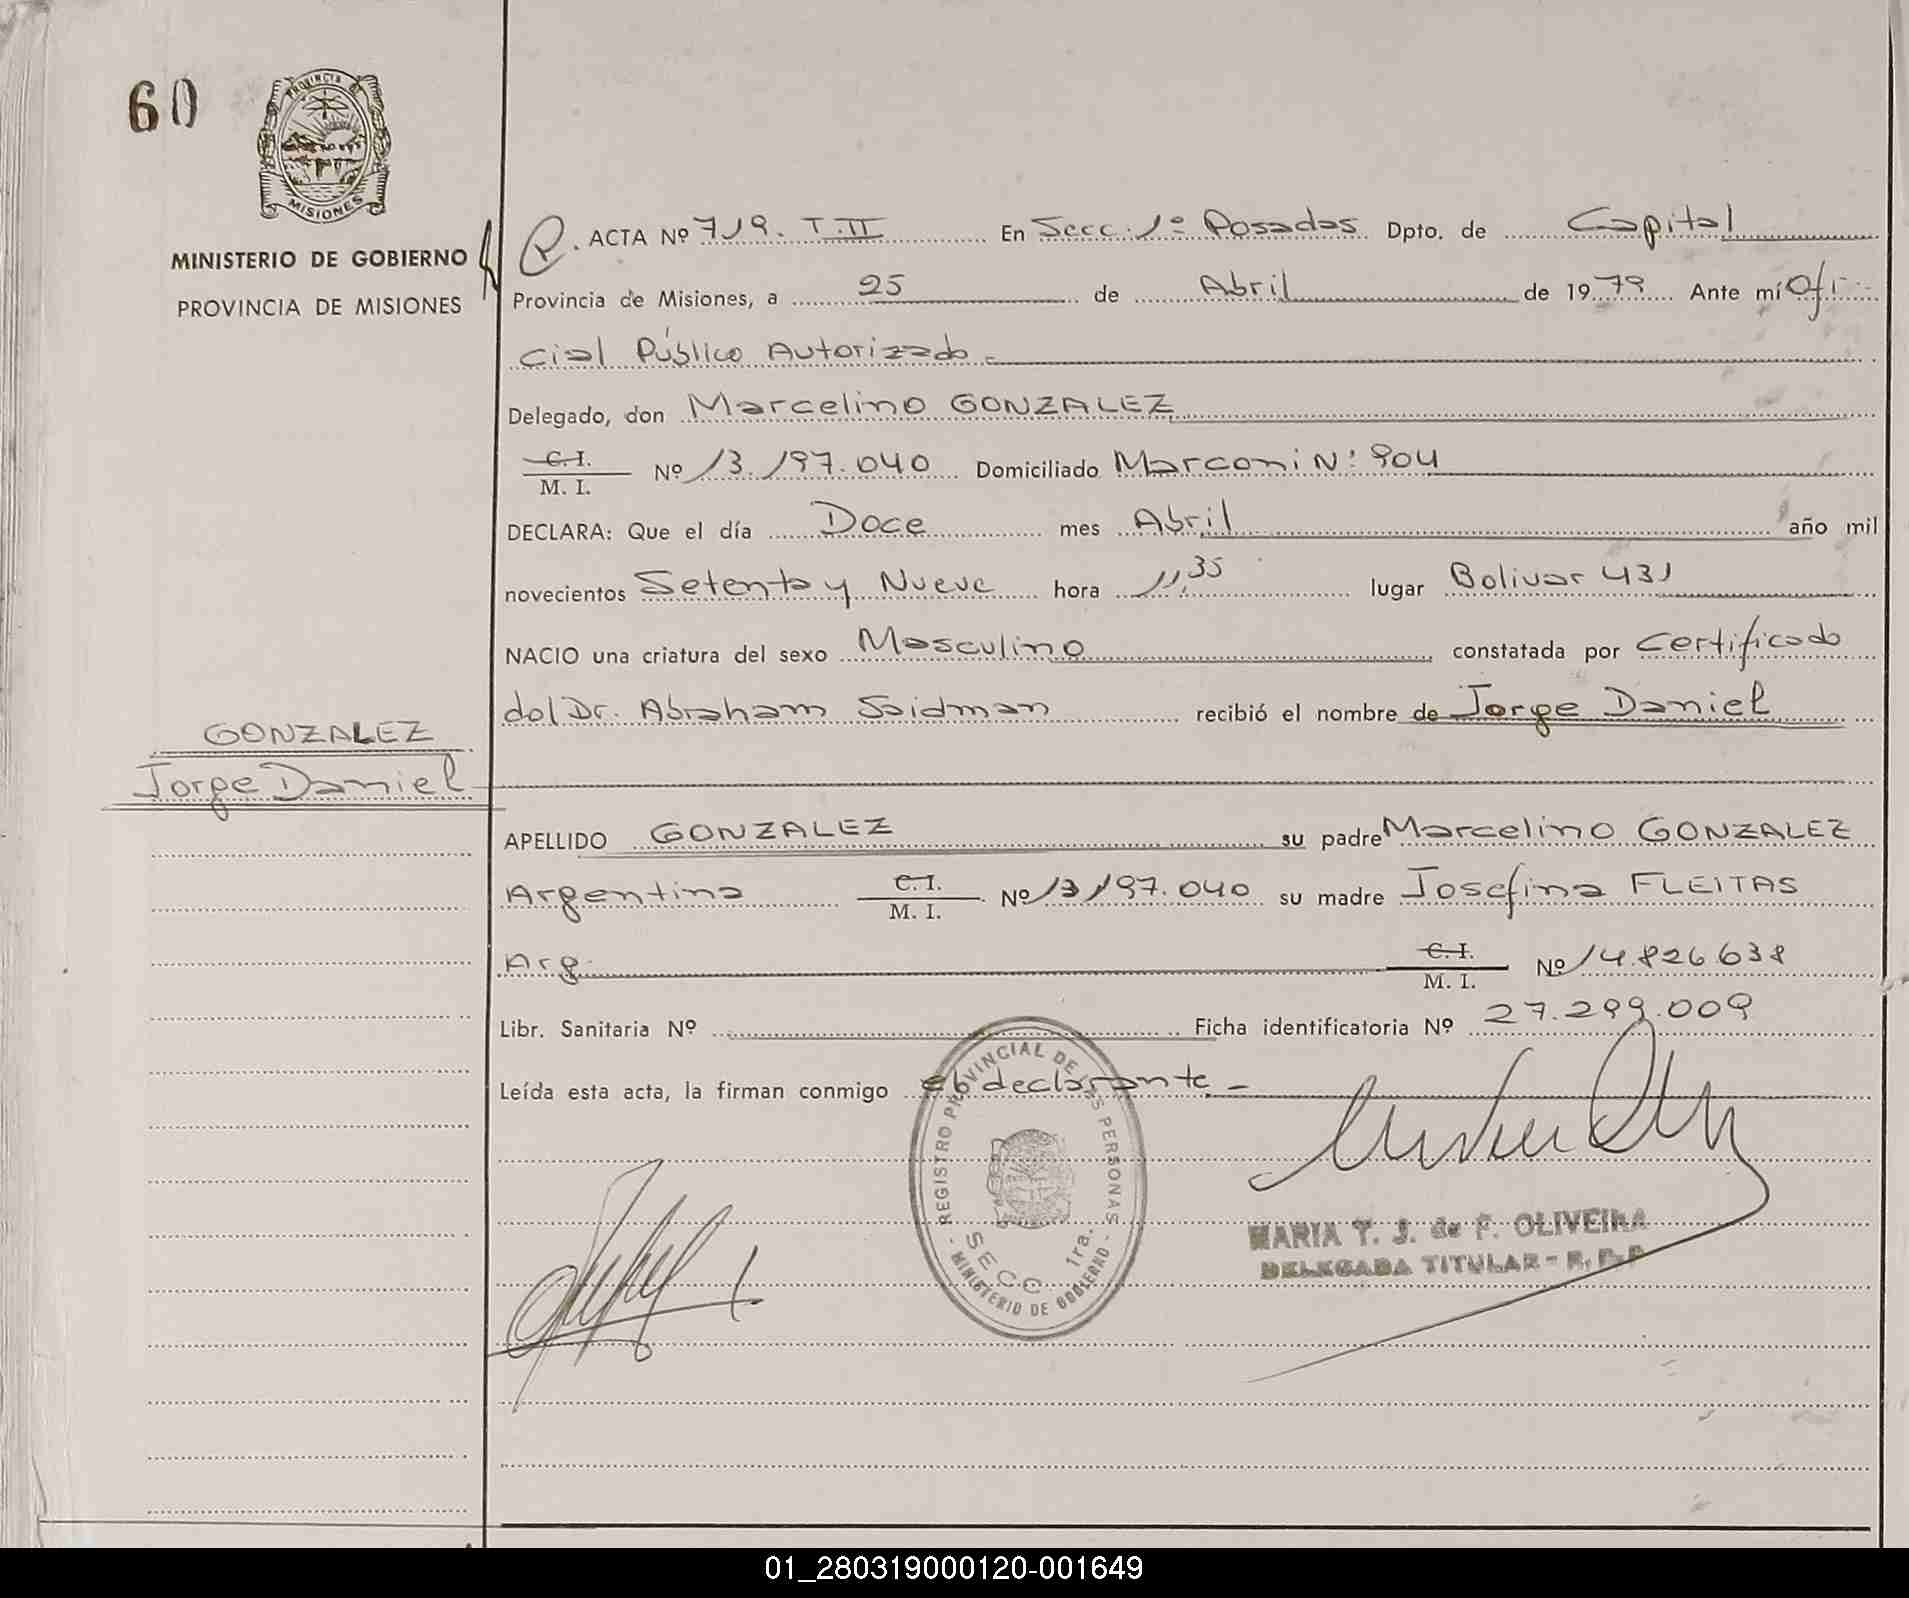 60
PROVINCIA DE
MISIONES
MINISTERIO DE GOBIERNO
PROVINCIA DE MISIONES
ACTA Nº 719. T. II En Secc. 1º Posadas Dpto. de Capital
Provincia de Misiones, a 25 de Abril de 1979 Ante mí Ofi-
cial Público Autorizado.
Delegado, don Marcelino GONZALEZ
C. I.
M. I. Nº 13.197.040 Domiciliado Marconi Nº 904
DECLARA: Que el día Doce mes Abril año mil
novecientos Setenta y Nueve hora 11,35 lugar Bolivar 431
NACIO una criatura del sexo Masculino constatada por Certificado
del Dr. Abraham Saidman recibió el nombre de Jorge Daniel
GONZALEZ
Jorge Daniel
APELLIDO GONZALEZ su padre Marcelino GONZALEZ
Argentina C. I. M. I. Nº 13.197.040 su madre Josefina FLEITAS
Arg. C. I. M. I. Nº 14.826.638
Libr. Sanitaria Nº Ficha identificatoria Nº 27.299.009
Leída esta acta, la firman conmigo el declarante
REGISTRO PROVINCIAL DE LAS PERSONAS
SECC. 1ra.
MINISTERIO DE GOBIERNO
MARIA T. J. de F. OLIVEIRA
DELEGADA TITULAR - R. P. P
01_280319000120-001649